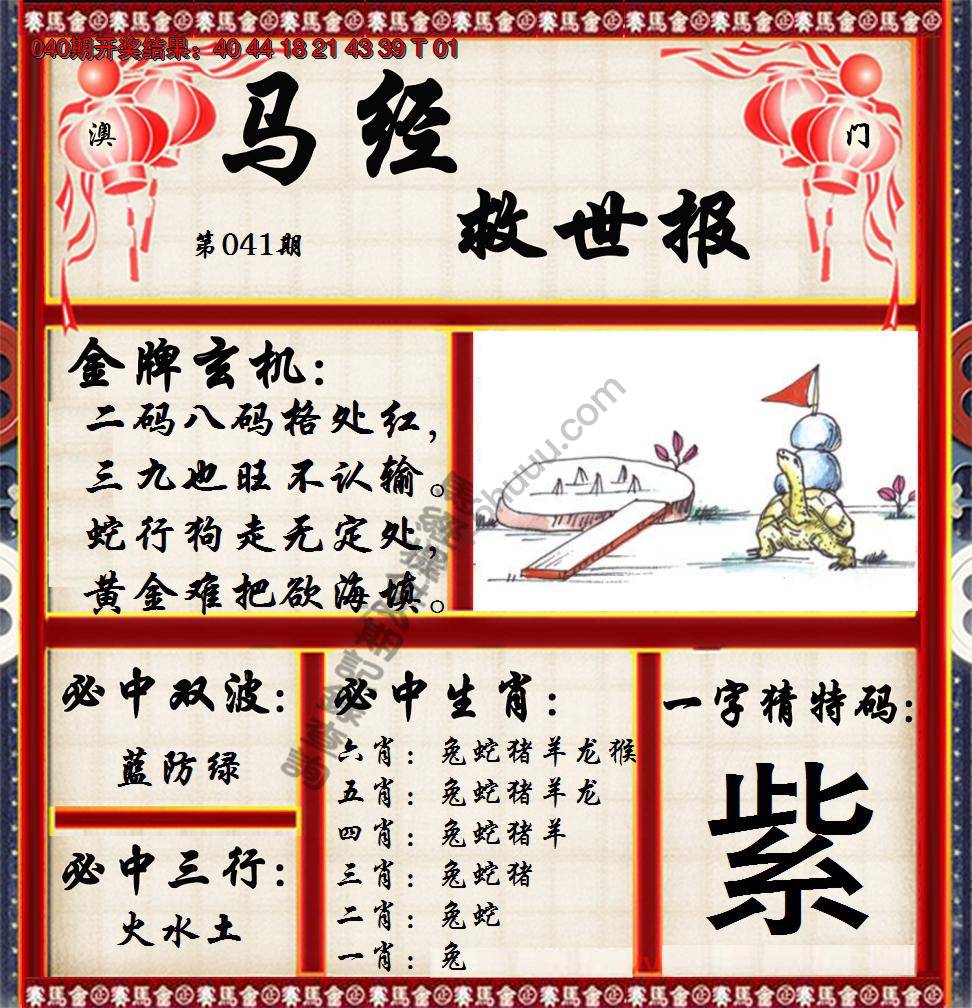 040期开奖结果：40 44 18 21 43 39 T 01
澳
门
马经
救世报
第041期
金牌玄机：
二码八码格处红，
三九也旺不认输。
蛇行狗走无定处，
黄金难把欲海填。
必中双波：
蓝防绿
必中三行：
火水土
必中生肖：
六肖：兔蛇猪羊龙猴
五肖：兔蛇猪羊龙
四肖：兔蛇猪羊
三肖：兔蛇猪
二肖：兔蛇
一肖：兔
一字猜特码：
紫